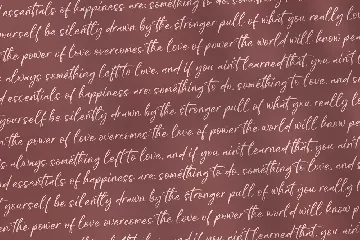 essentials of happiness are: something to do, something
yourself be silently drawn by the stronger pull of what you really lo
the power of love overcomes the love of power the world will know pea
always something left to love. and if you ain't learned that, you ain
d essentials of happiness are: something to do, something to love, and
yourself be silently drawn by the stronger pull of what you really l
n the power of love overcomes the love of power the world will know pe
is always something left to love. and if you ain't learned that, you
nd essentials of happiness are: something to do, something to love, an
yourself be silently drawn by the stronger pull of what you really
en the power of love overcomes the love of power the world will know p
always something left to love. and if you ain't learned that, you ain